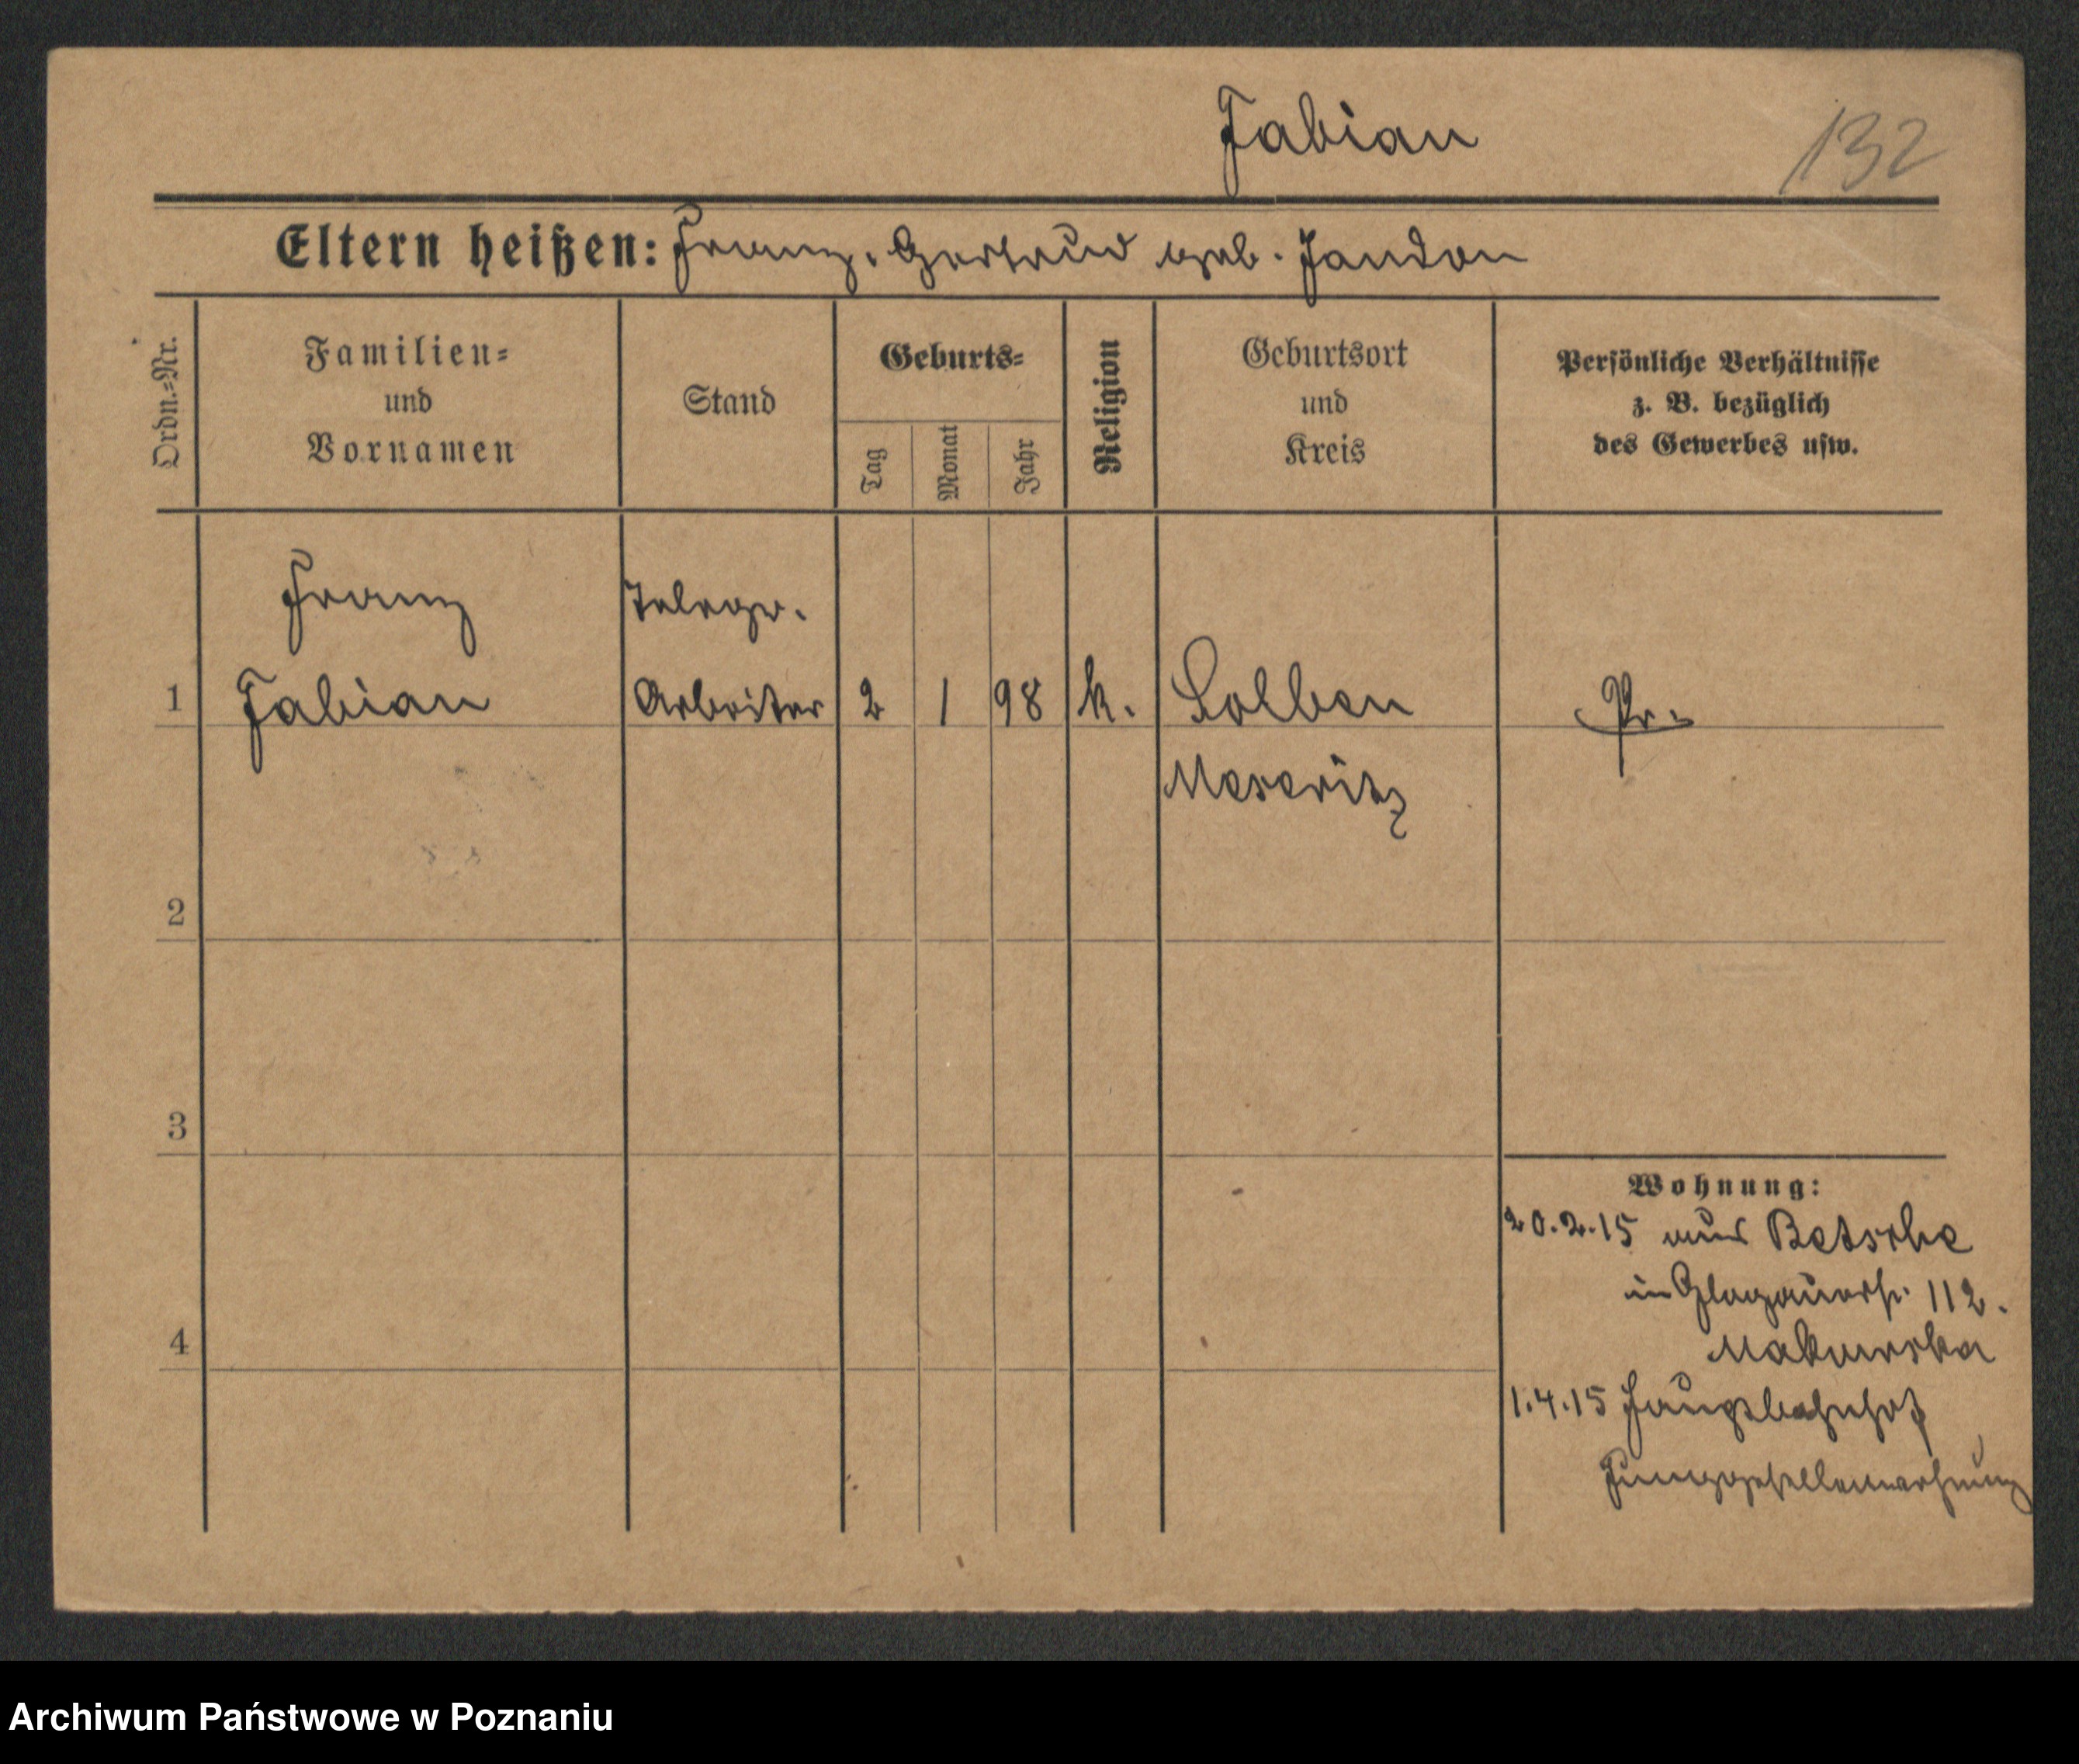 Fabian
132
Eltern heißen: Franz, Gertrud geb. Jandon
Ordn.=Nr.
Familien=
und
Vornamen
Stand
Geburts=
Tag
Monat
Jahr
Religion
Geburtsort
und
Kreis
Persönliche Verhältnisse
z. B. bezüglich
des Gewerbes usw.
Franz
Telegr.
1 Fabian Arbeiter 2 1 98 k. Solben Pr.
Meseritz
2
3
4
Wohnung:
20.2.15 aus Betsche
in Glogauerstr. 112.
Makowska
1.4.15 Hauptbahnhof
Junggesellenwohnung
Archiwum Państwowe w Poznaniu